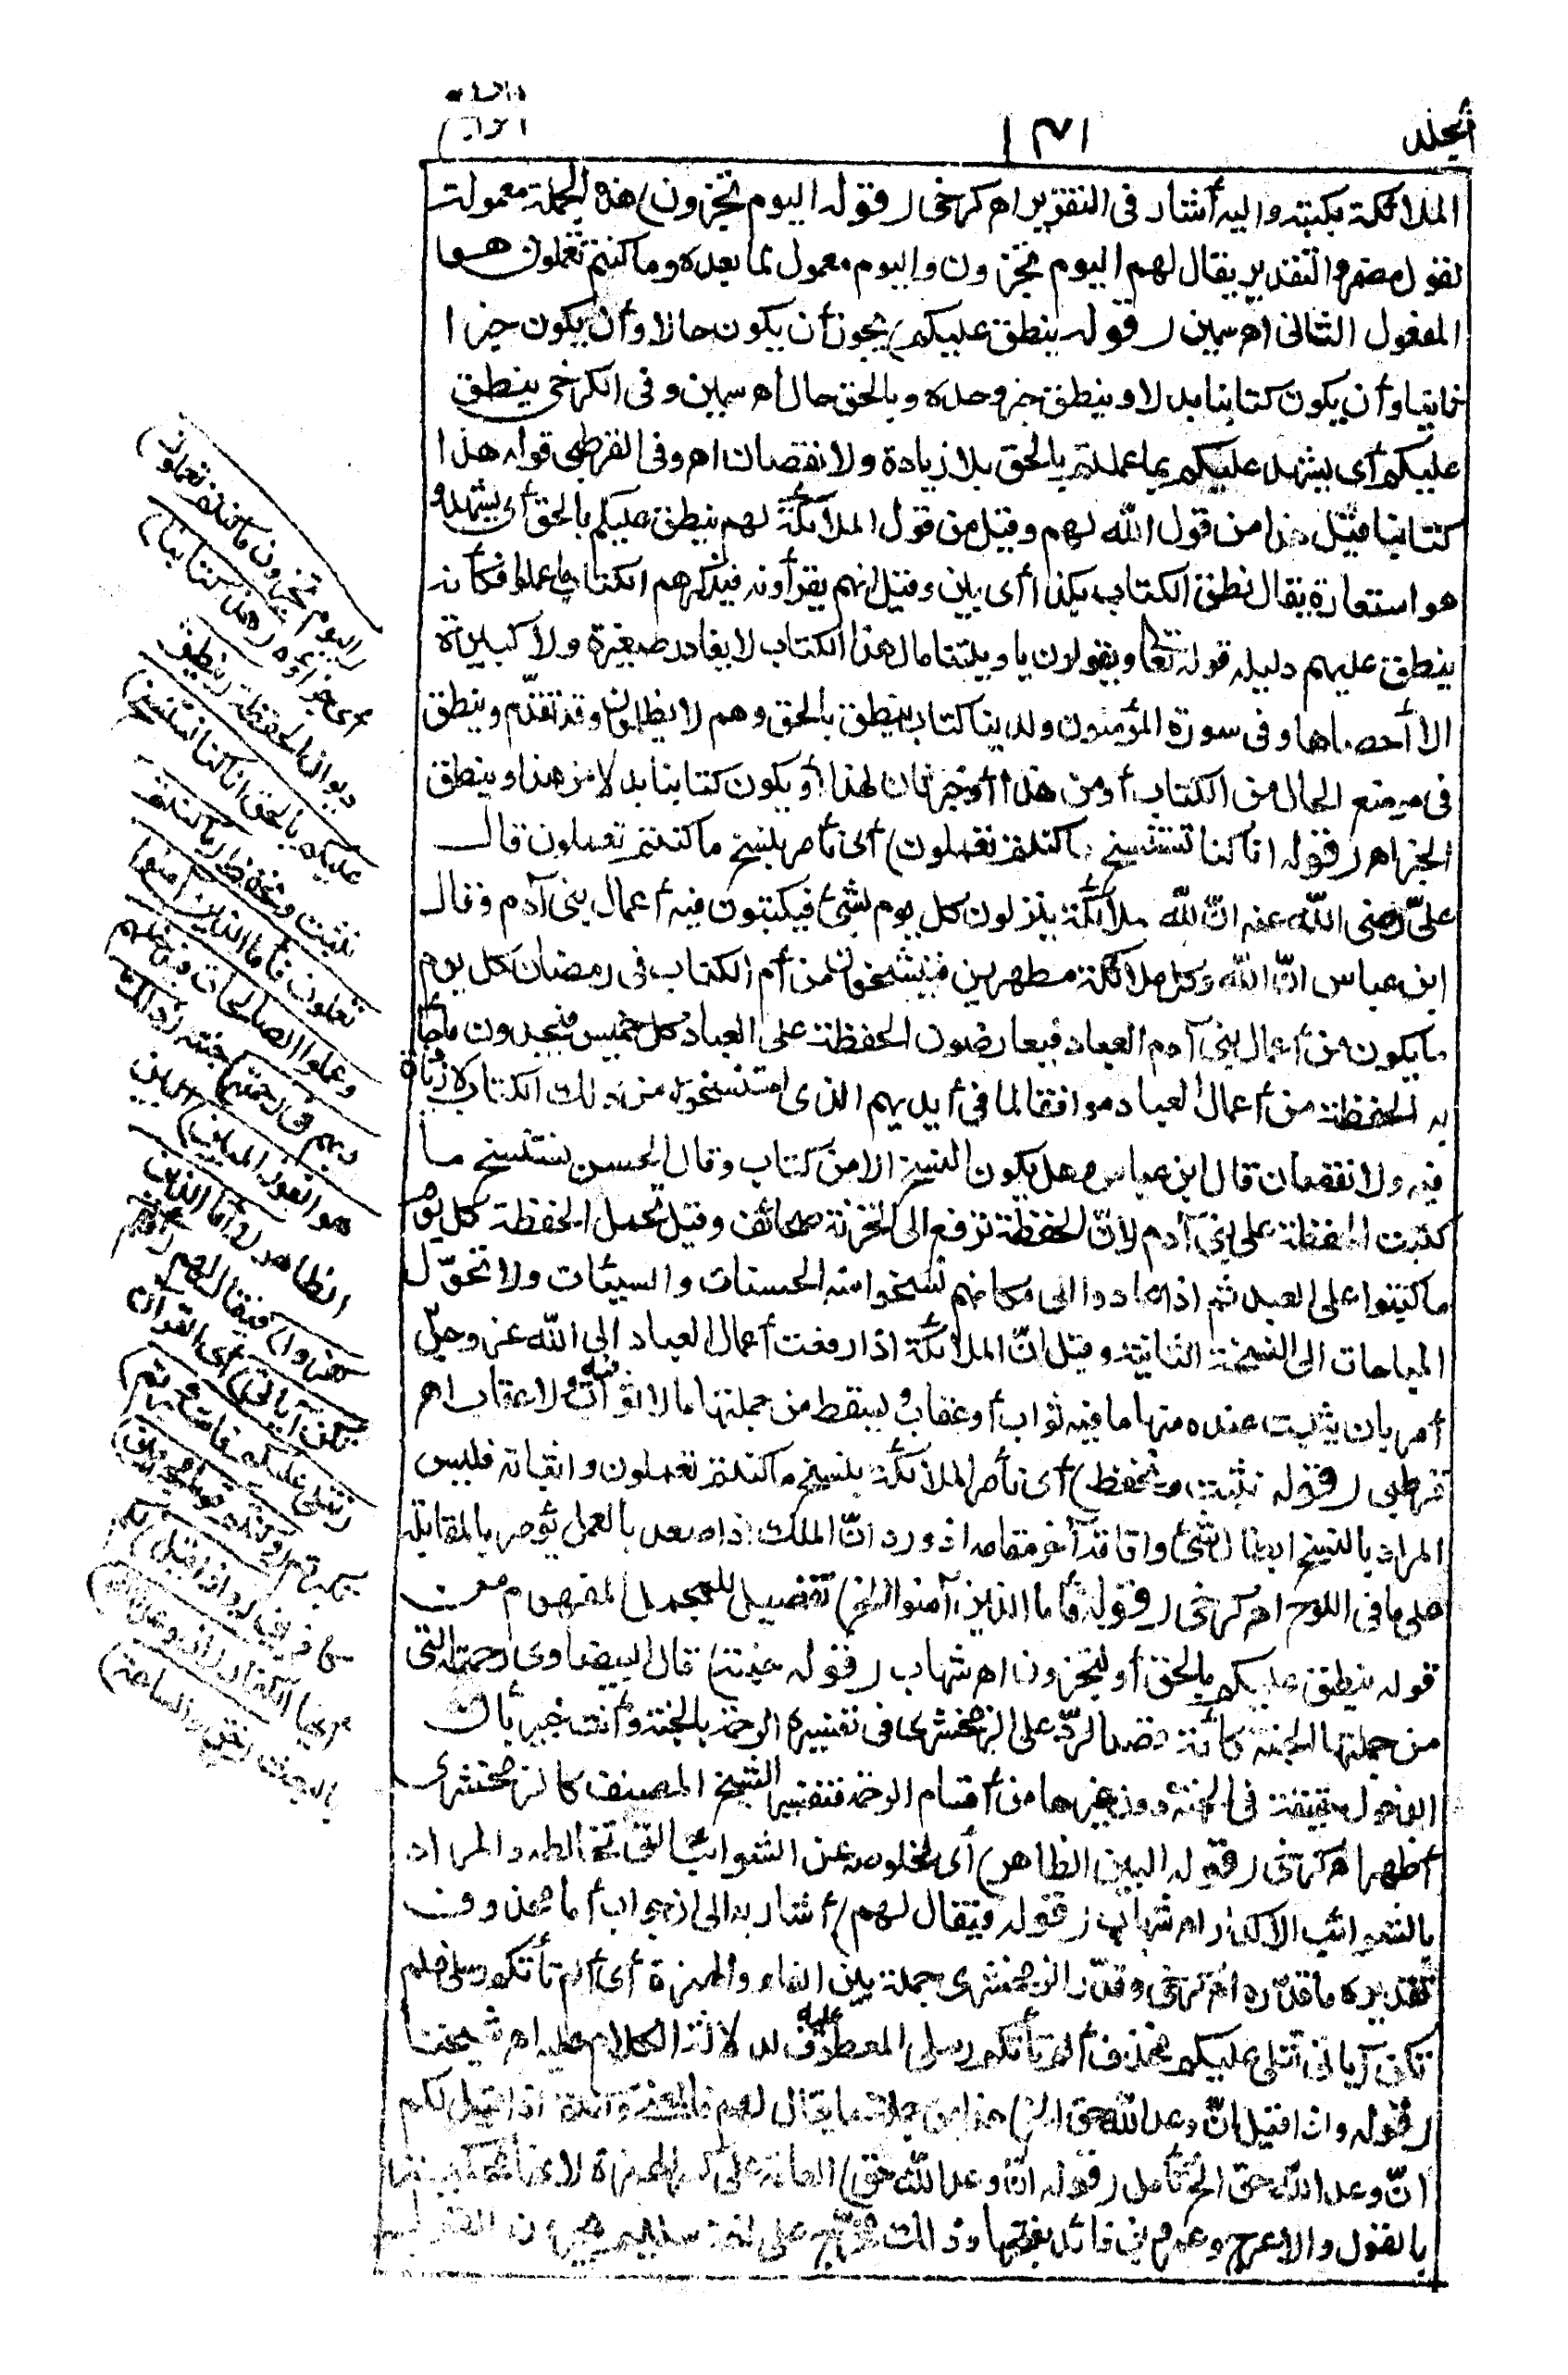 الملائكة بكتبه واليه أشار فى التقرير اه كرخى (قوله اليوم تجزون) هذه الجملة معمولة
لقول مضمر والتقدير يقال لهم اليوم تجزون واليوم معمول لما بعده وما كنتم تعملون هو
المفعول الثانى اه سمين (قوله ينطق عليكم) يجوز أن يكون حالا وأن يكون خبرا
ثانيا وأن يكون كتابنا بدلا وينطق خبر وحده وبالحق حال اه سمين وفى الكرخى ينطق
عليكم أى يشهد عليكم بما عملتم بالحق بلا زيادة ولا نقصان اه وفى القرطبى قوله هذا
كتابنا قيل هذا من قول الله لهم وقيل من قول الملائكة لهم ينطق عليكم بالحق أى يشهد و
هو استعارة يقال نطق الكتاب بكذا أى بين وقيل انهم يقرأونه فيذكرهم الكتاب ما عملوا فكأنه
ينطق عليهم دليله قوله تعالى ويقولون ياويلتنا مال هذا الكتاب لا يغادر صغيرة ولا كبيرة
الا أحصاها وفى سورة المؤمنون ولدينا كتاب ينطق بالحق وهم لا يظلمون وقد تقدّم وينطق
فى موضع الحال من الكتاب أو من هذا أو خبر ثان لهذا أو يكون كتابنا بدلا من هذا وينطق
الخبر اه (قوله انا كنا نستنسخ ما كنتم تعملون) أى نأمر بنسخ ما كنتم تعملون قال
علىّ رضى الله عنه انّ لله ملائكة ينزلون كل يوم بشئ فيكتبون فيه أعمال بنى آدم وقال
ابن عباس انّ الله وكل ملائكة مطهرين فينسخون من أم الكتاب فى رمضان كل يوم
ما يكون من أعمال بنى آدم العباد فيعارضون الحفظة على العباد كل خميس فيجدون ما جاء
به الحفظة من أعمال العباد موافقا لما فى أيديهم الذى استنسخوه من ذلك الكتاب لا زيادة
فيه ولا نقصان قال ابن عباس وهل يكون النسخ الا من كتاب وقال الحسن نستنسخ ما
كتبت الحفظة على بنى آدم لانّ الحفظة ترفع الى الخزنة صحائف وقيل تحمل الحفظة كل يوم
ما كتبوا على العبد ثم اذا عادوا الى مكانهم نسخوا منه الحسنات والسيئات ولا تحوّل
المباحات الى النسخة الثانية وقيل انّ الملائكة اذا رفعت أعمال العباد الى الله عز وجلّ
أمر بان يثبت عنده منها ما فيه ثواب أو عقاب ويسقط من جملتها ما لا ثواب فيه ولا عقاب اه
قرطبى (قوله نثبت ونحفظ) أى نأمر الملائكة بنسخ ما كنتم تعملون واثباته فليس
المراد بالنسخ ابطال شئ واقامة آخر مقامه اذ ورد انّ الملك اذا صعد بالعمل يؤمر بالمقابلة
على ما فى اللوح اه كرخى (قوله فأما الذين آمنوا الخ) تفصيل للمجمل المفهوم من
قوله ينطق عليكم بالحق أو تجزون اه شهاب (قوله جنته) قال البيضاوى رحمته التى
من جملتها الجنة كأنه قصد الردّ على الزمخشرى فى تفسيره الرحمة بالجنة وأنت خبير بأن
الدخول حقيقة فى الجنة دون غيرها من أقسام الرحمة فتفسير الشيخ المصنف كالزمخشرى
أظهر اه كرخى (قوله البين الظاهر) أى لخلوصه عن الشوائب التى تخالطه والمراد
بالشوائب الاكدار اه شهاب (قوله فيقال لهم) أشار به الى انّ جواب أما محذوف
تقديره ما قدّره اه كرخى وقدّر الزمخشرى جملة بين الفاء والهمزة أى ألم تأتكم رسلى فلم
تكن آياتى تتلى عليكم فحذف ألم تأتكم رسلى المعطوف عليه لدلالة الكلام عليه اه شيخنا
(قوله واذا قيل انّ وعد الله حق الخ) هذا من جملة ما يقال لهم فالمعنى وانه اذا قيل لكم
انّ وعد الله حق الخ تأمل (قوله انّ وعد الله حق) العامة على كسر الهمزة لانها محكية
بالقول والاعرج وعمرو بن فائد بفتحها وذلك مخرّج على لغة سليم يجرون القول
اليوم تجزون ما كنتم تعملون)
أى جزاؤه (هذا كتابنا)
ديوان الحفظة (ينطق
عليكم بالحق انا كنا نستنسخ)
نثبت ونحفظ (ما كنتم
تعملون فأما الذين آمنوا
وعملوا الصالحات فيدخلهم
ربهم فى رحمته) جنته (ذلك
هو الفوز المبين) البين
الظاهر (وأما الذين
كفروا) فيقال لهم (أفلم
تكن آياتى) أى القرآن
(تتلى عليكم فاستكبرتم)
تكبرتم (وكنتم قوما مجرمين)
كافرين (واذا قيل) لكم
أيها الكفار (انّ وعد الله)
بالبعث (حق والساعة)